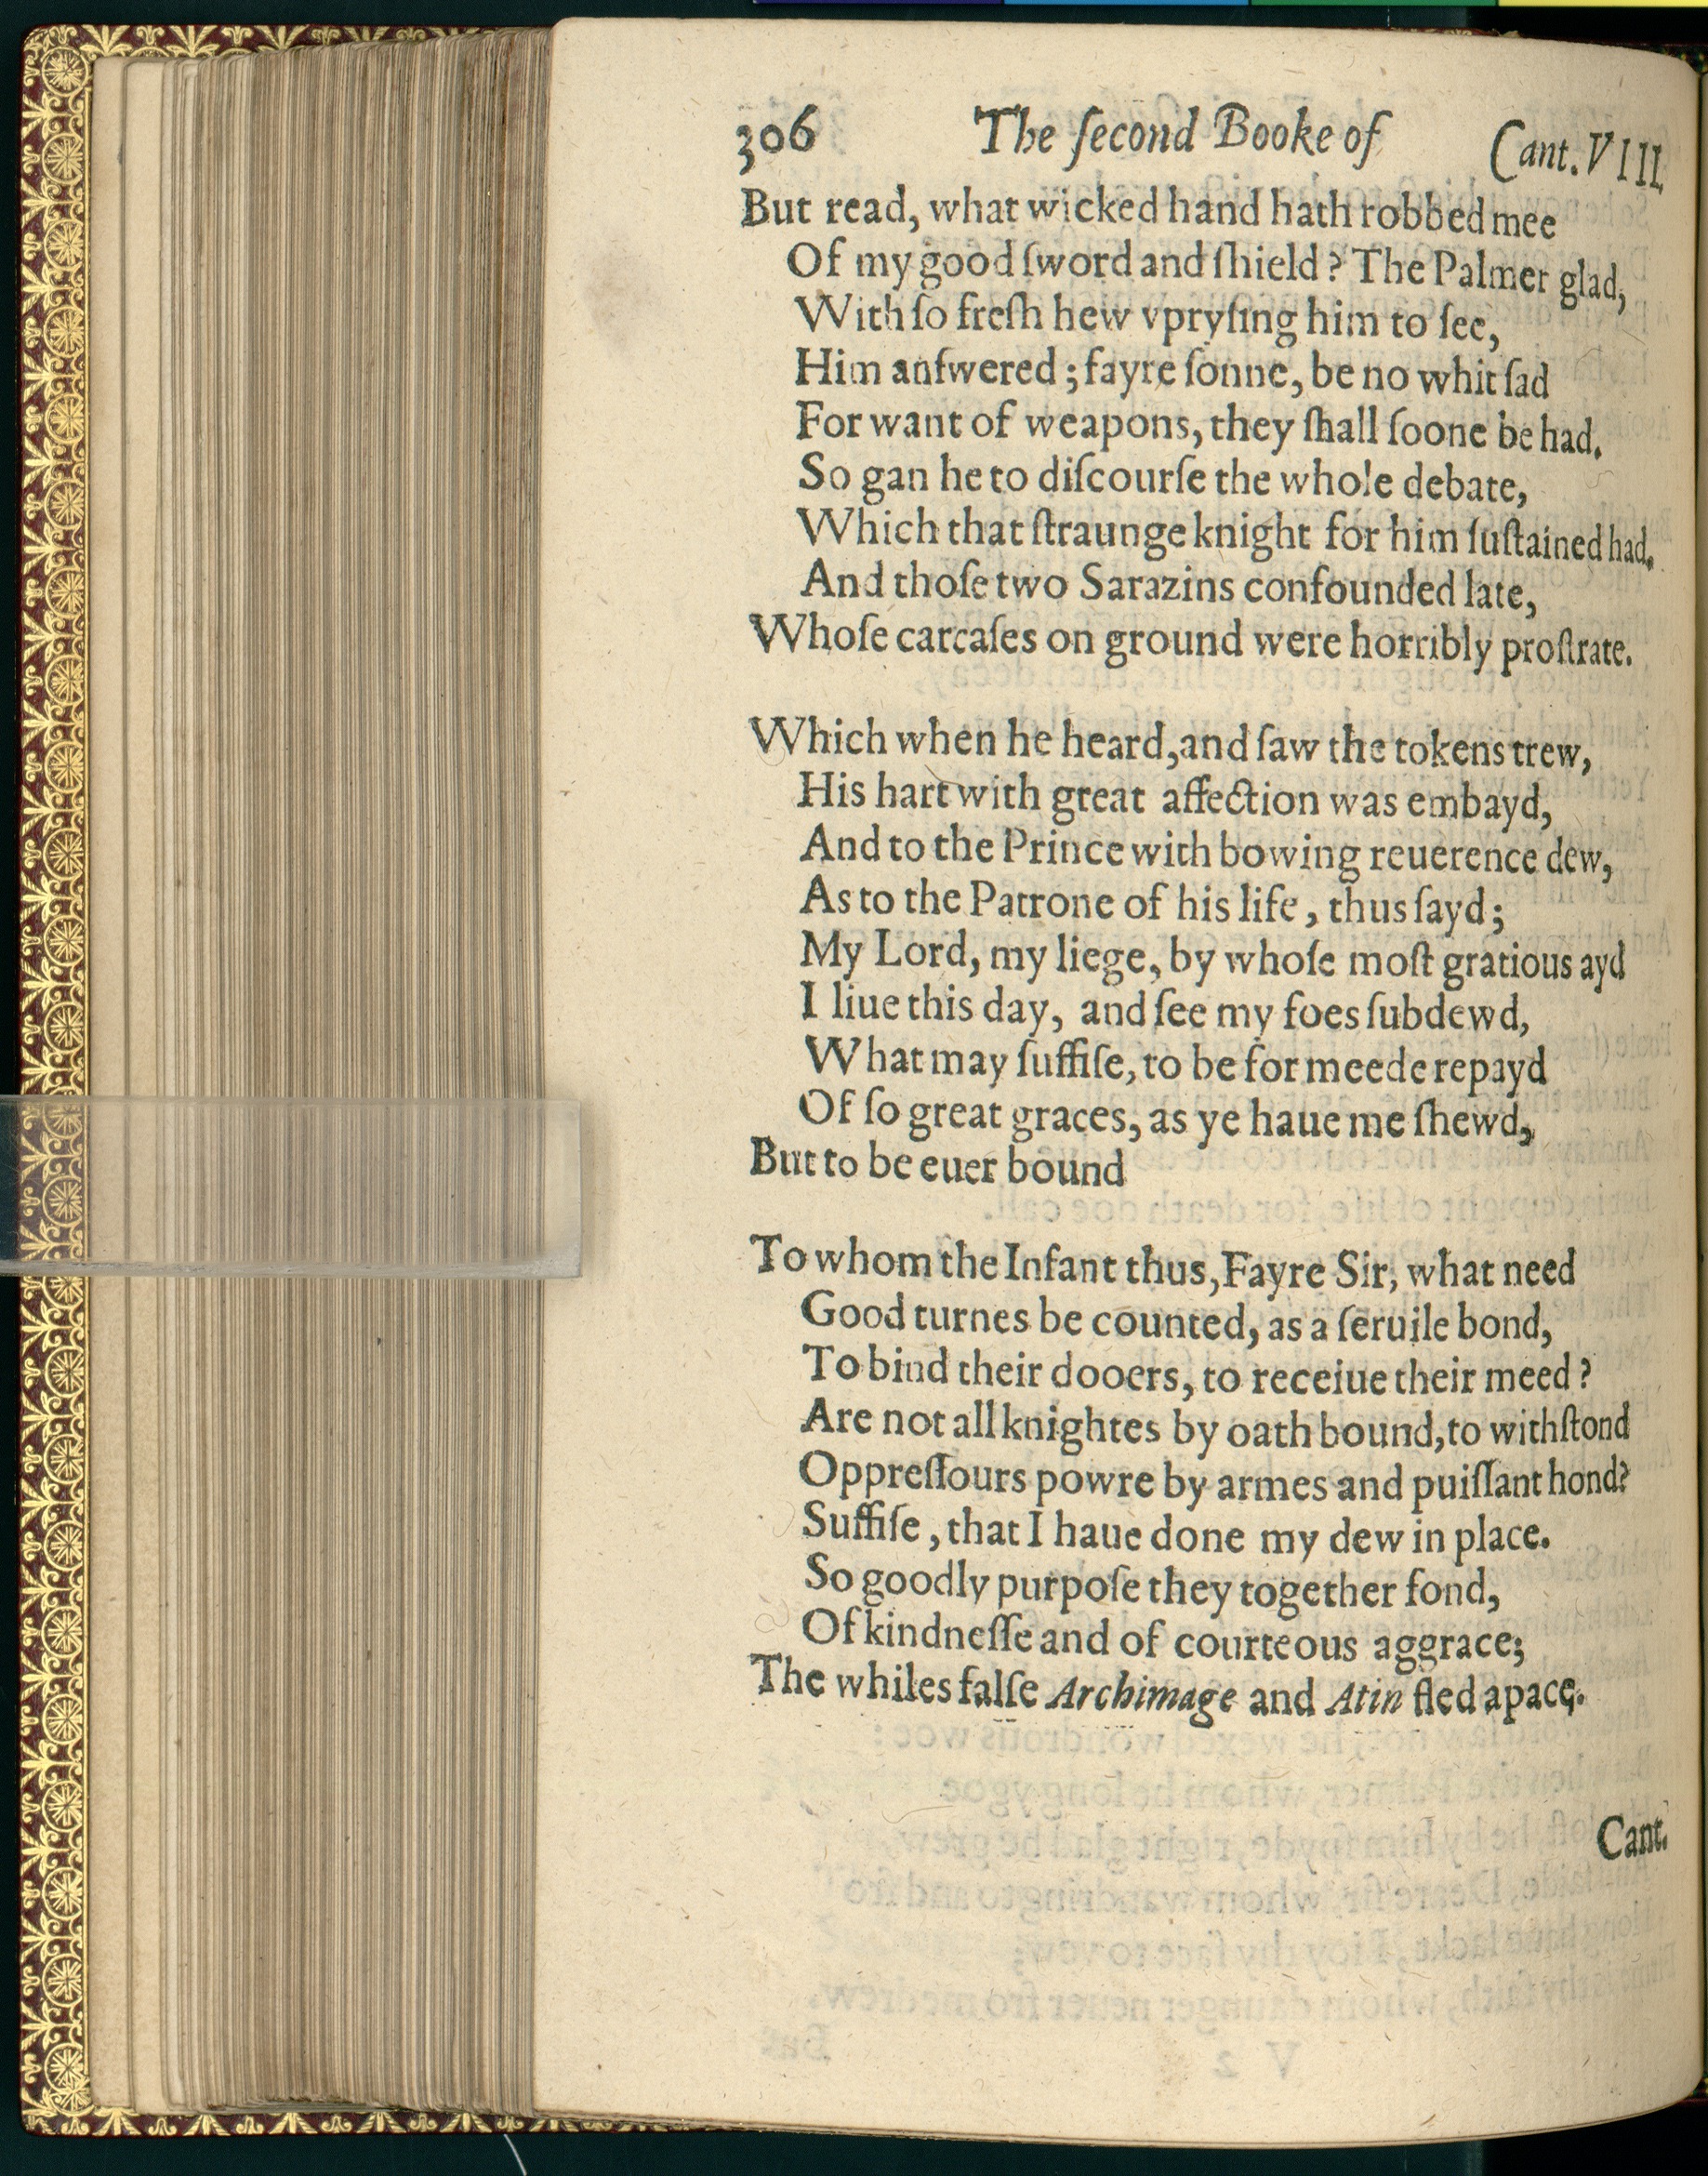 306 The ſecond Booke of Cant. VIII.
But read, what wicked hand hath robbed mee
Of my good ſword and ſhield? The Palmer glad,
With ſo freſh hew vpryſing him to ſee,
Him anſwered; fayre ſonne, be no whit ſad
For want of weapons, they ſhall ſoone be had.
So gan he to diſcourſe the whole debate,
Which that ſtraunge knight for him ſuſtained had,
And thoſe two Sarazins confounded late,
Whoſe carcaſes on ground were horribly proſtrate.
Which when he heard, and ſaw the tokens trew,
His hart with great affection was embayd,
And to the Prince with bowing reuerence dew,
As to the Patrone of his life, thus ſayd;
My Lord, my liege, by whoſe moſt gratious ayd
I liue this day, and ſee my foes ſubdewd,
What may ſuffiſe, to be for meede repayd
Of ſo great graces, as ye haue me ſhewd,
But to be euer bound
To whom the Infant thus, Fayre Sir, what need
Good turnes be counted, as a ſeruile bond,
To bind their dooers, to receiue their meed?
Are not all knightes by oath bound, to withſtond
Oppreſſours powre by armes and puiſſant hond?
Suffiſe, that I haue done my dew in place.
So goodly purpoſe they together fond,
Of kindneſſe and of courteous aggrace;
The whiles falſe Archimage and Atin fled apace.
Cant.